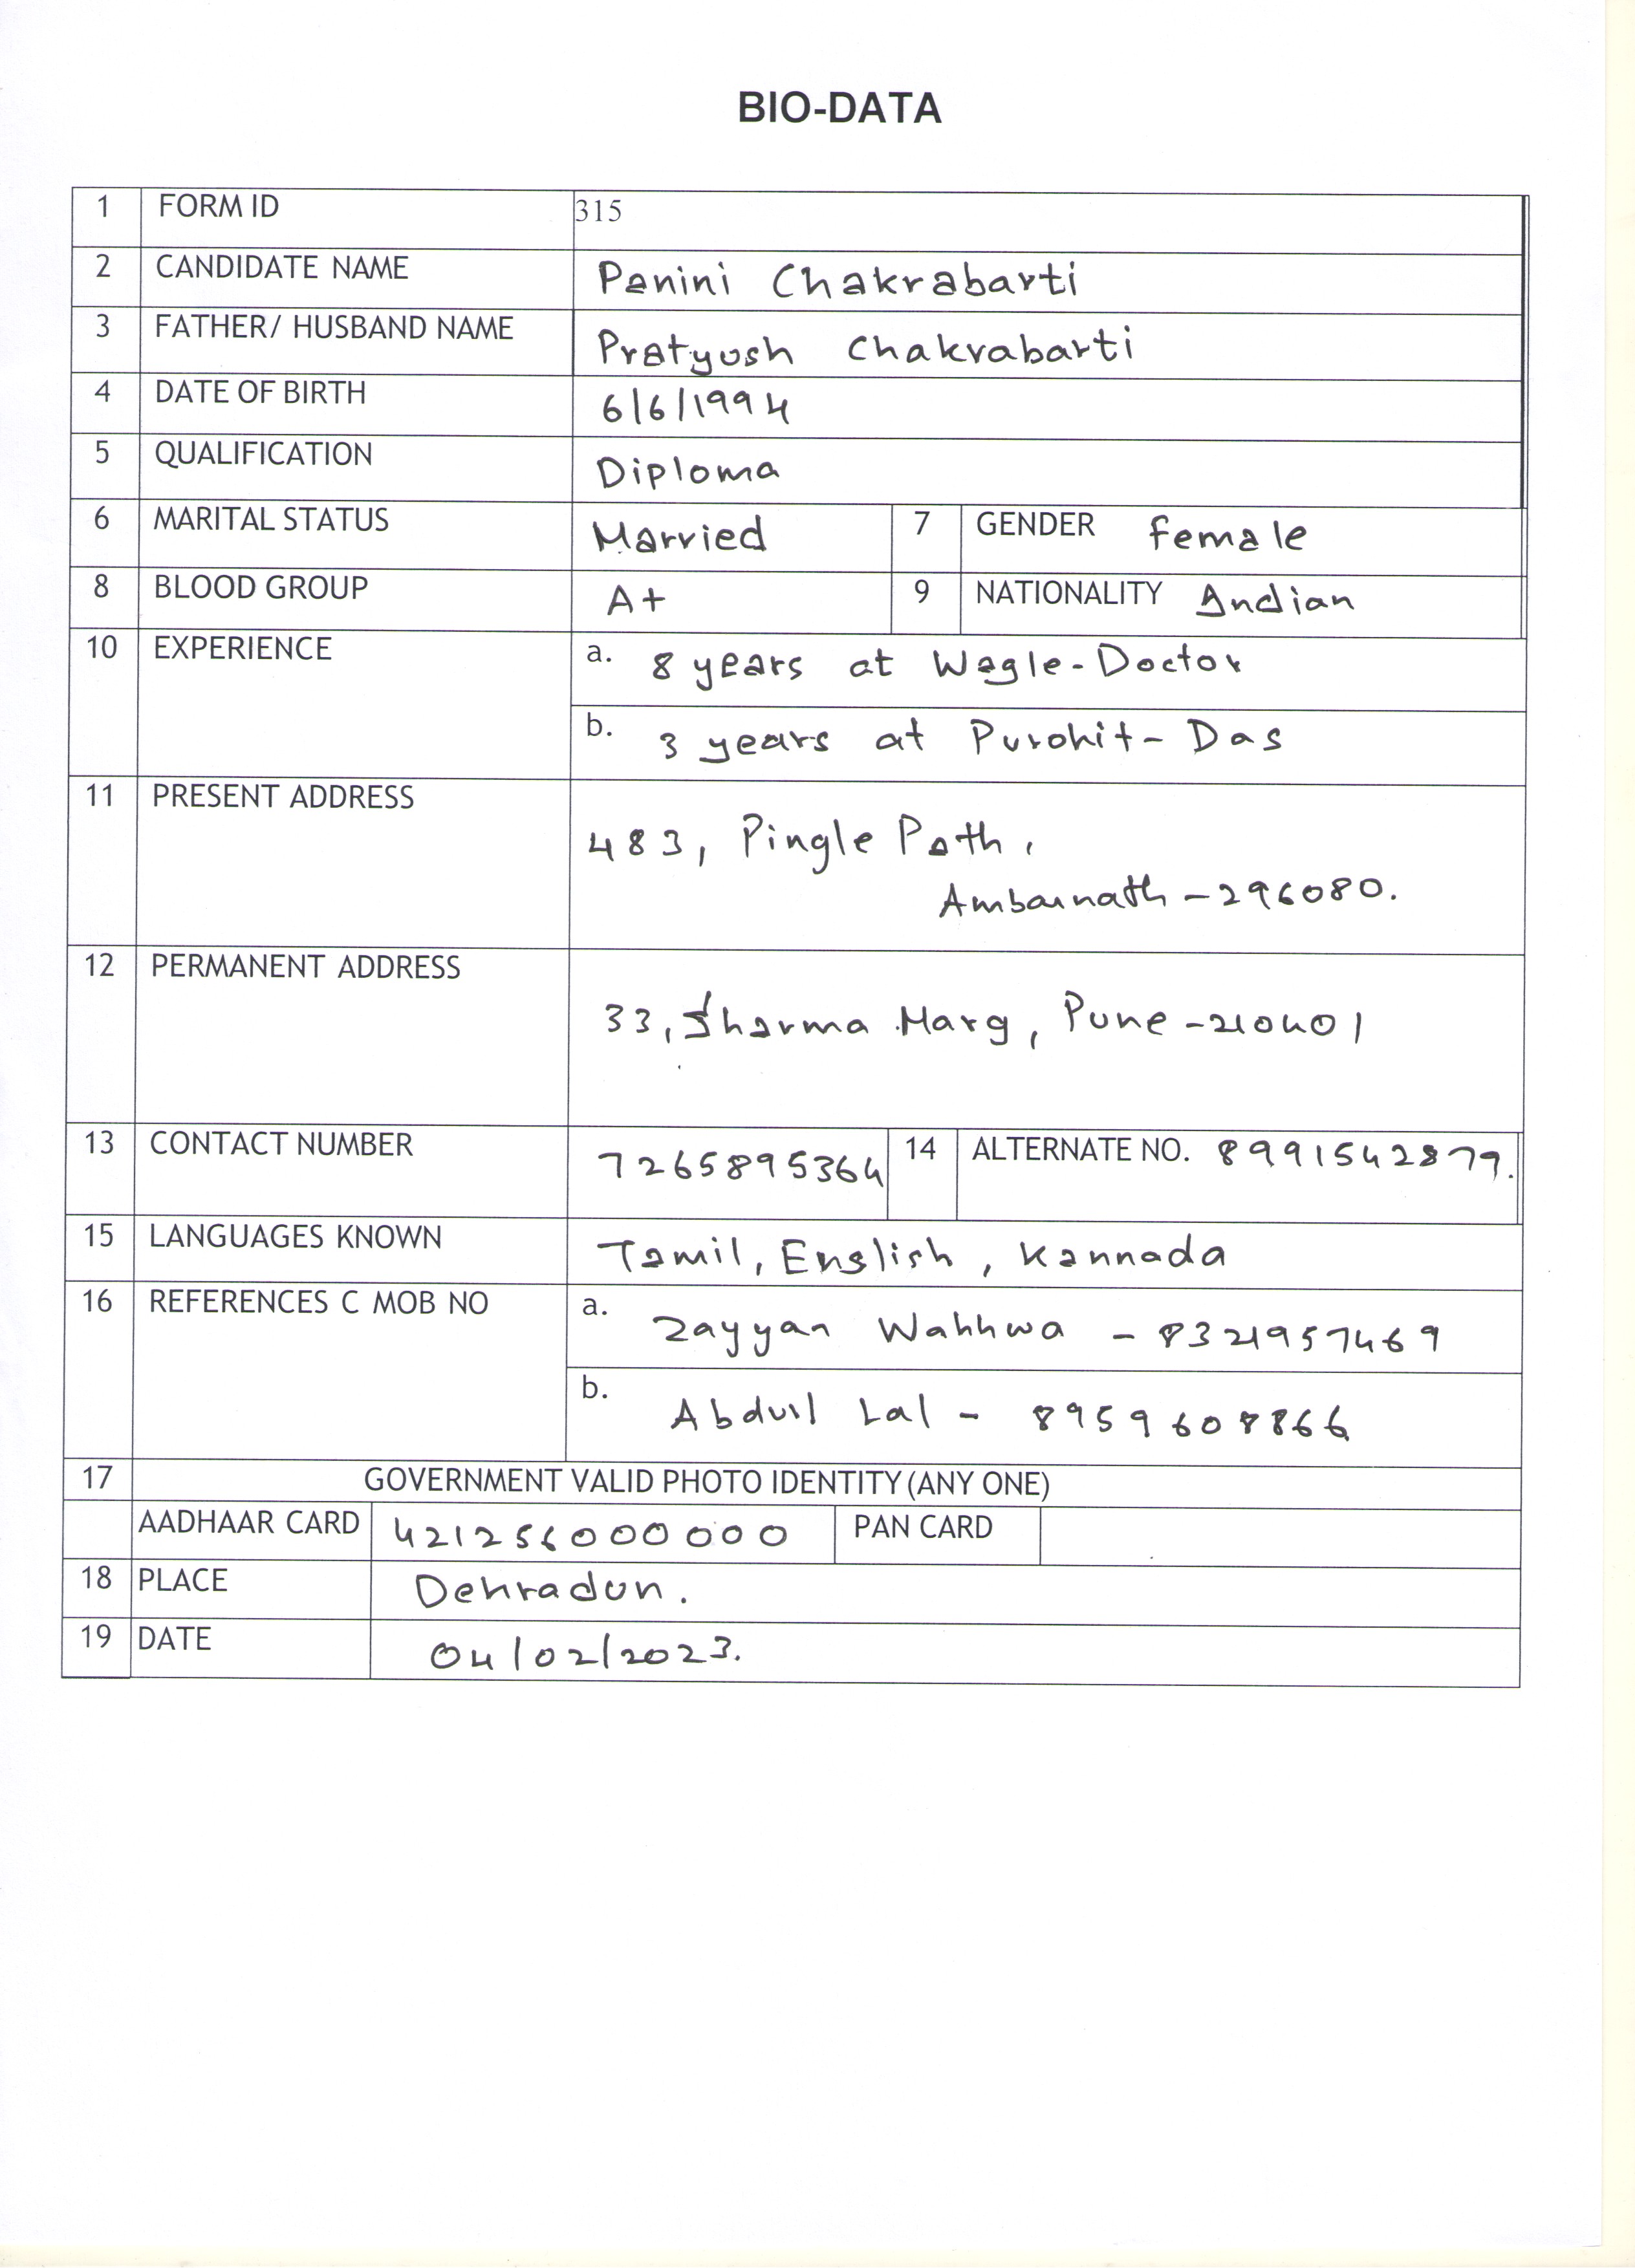 BIO-DATA
1 FORM ID 315
2 CANDIDATE NAME Panini Chakrabarti
3 FATHER/ HUSBAND NAME Pratyush Chakrabarti
4 DATE OF BIRTH 6/6/1994
5 QUALIFICATION Diploma
6 MARITAL STATUS Married 7 GENDER Female
8 BLOOD GROUP A+ 9 NATIONALITY Indian
10 EXPERIENCE a. 8 years at Wagle-Doctor
b. 3 years at Purohit- Das
11 PRESENT ADDRESS
483, Pingle Path,
Ambarnath - 296080.
12 PERMANENT ADDRESS
33, Sharma Marg, Pune - 210401
13 CONTACT NUMBER 7265895364 14 ALTERNATE NO. 8991542879.
15 LANGUAGES KNOWN Tamil, English, Kannada
16 REFERENCES C MOB NO a. Zayyan Wahhwa - 8321957469
b. Abdul Lal - 8959608866
17 GOVERNMENT VALID PHOTO IDENTITY (ANY ONE)
AADHAAR CARD 421256000000 PAN CARD
18 PLACE Dehradun.
19 DATE 04/02/2023.